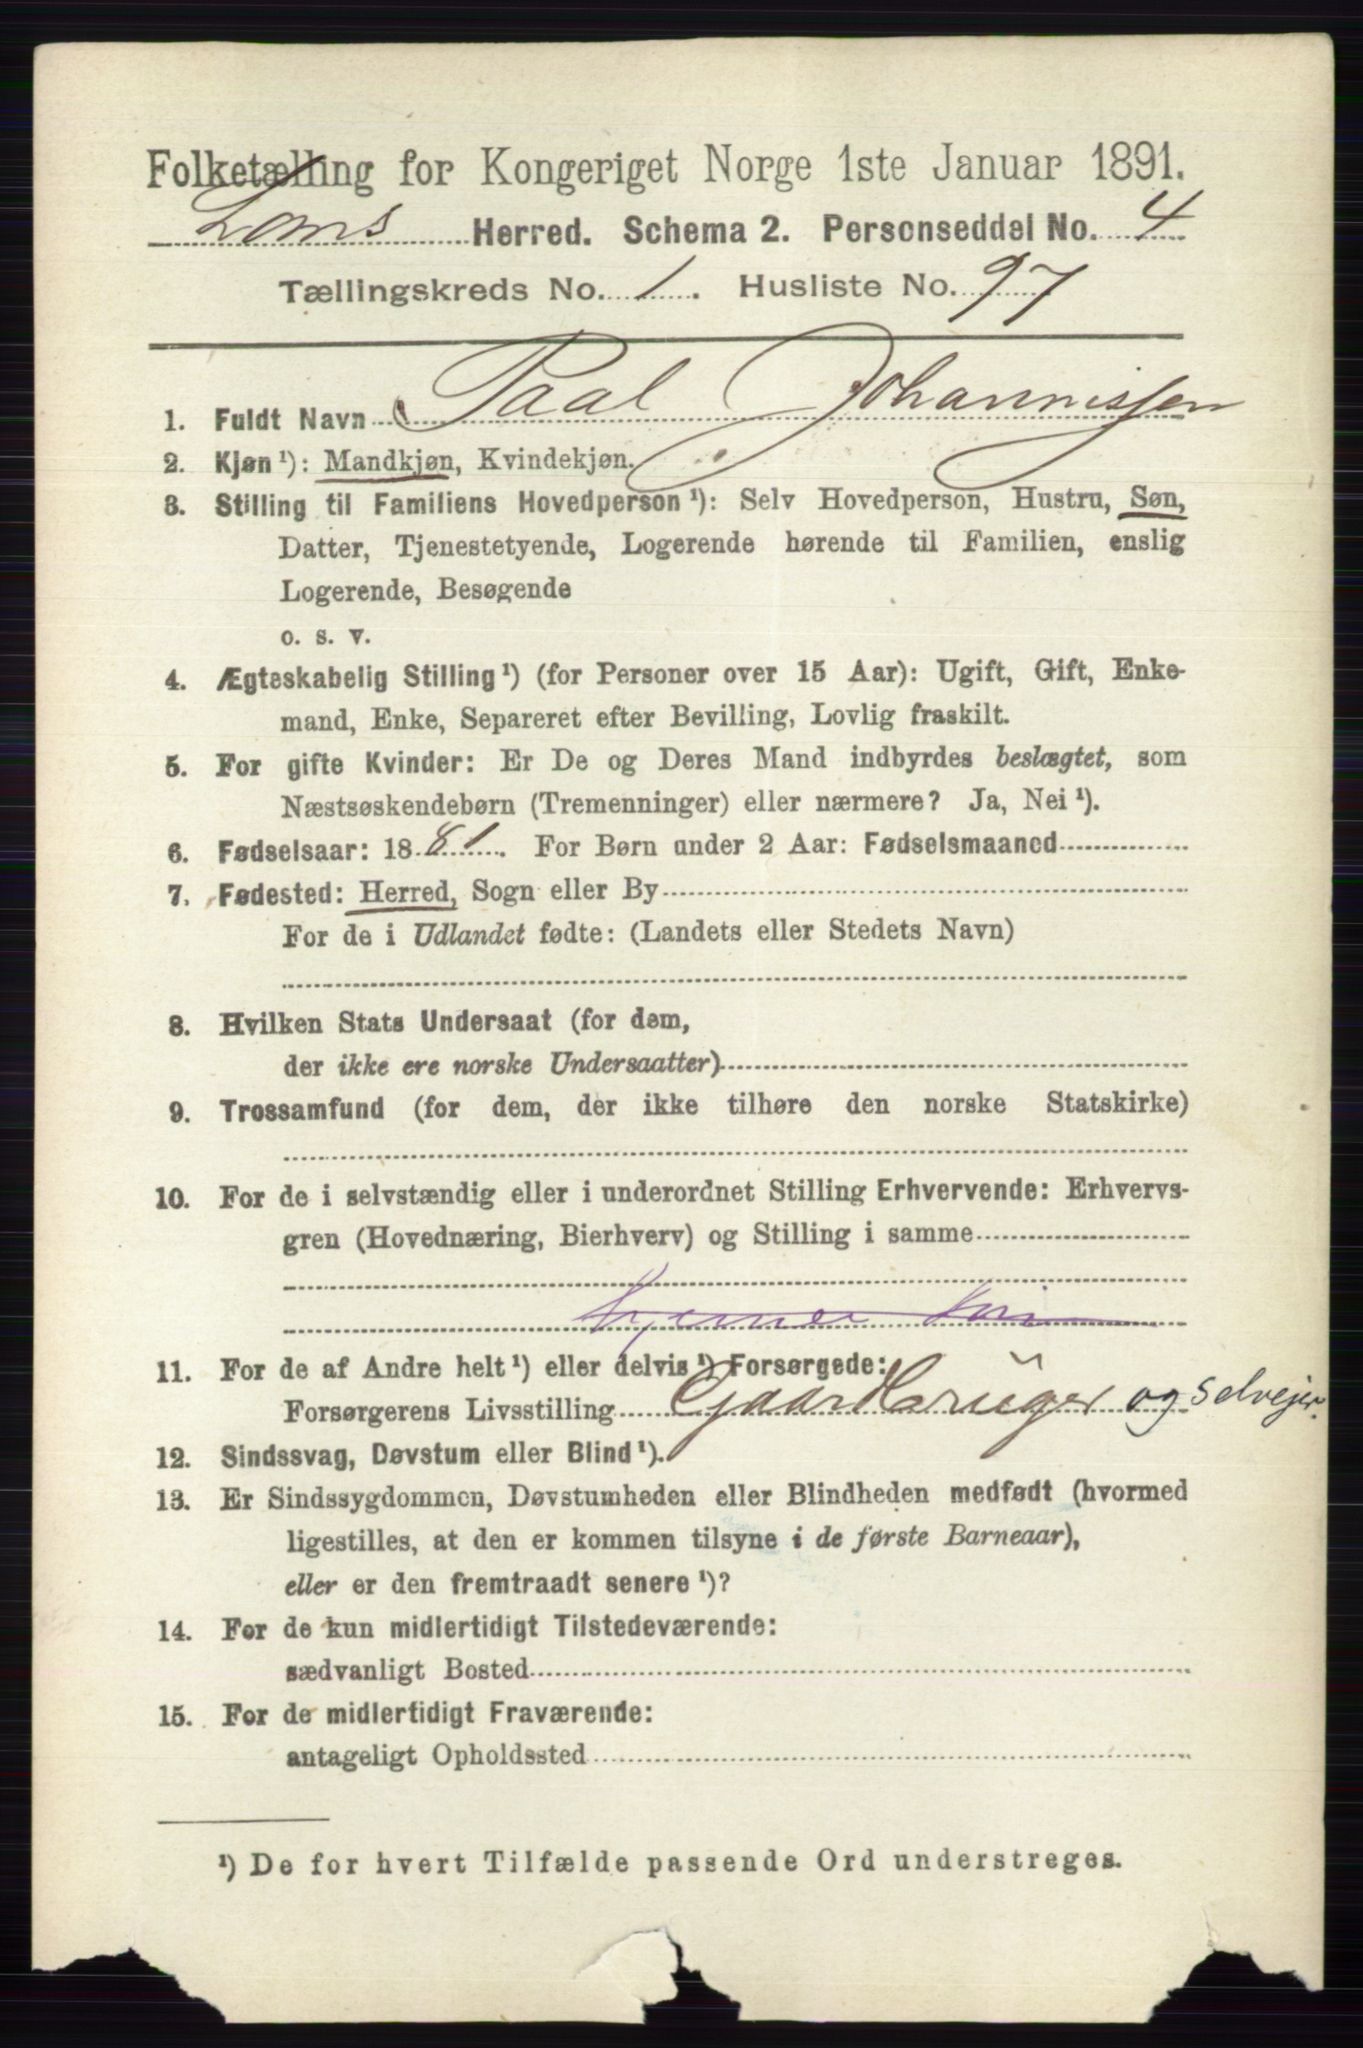 Folketælling for Kongeriget Norge 1ste Januar 1891.
Loms Herred. Schema 2. Personseddel No. 4
Tællingskreds No. 1. Husliste No. 97
1. Fuldt Navn Paal Johannissen
2. Kjøn ¹): Mandkjøn, Kvindekjøn.
3. Stilling til Familiens Hovedperson ¹): Selv Hovedperson, Hustru, Søn,
Datter, Tjenestetyende, Logerende hørende til Familien, enslig
Logerende, Besøgende
o. s. v.
4. Ægteskabelig Stilling ¹) (for Personer over 15 Aar): Ugift, Gift, Enke-
mand, Enke, Separeret efter Bevilling, Lovlig fraskilt.
5. For gifte Kvinder: Er De og Deres Mand indbyrdes beslægtet, som
Næstsøskendebørn (Tremenninger) eller nærmere? Ja, Nei ¹).
6. Fødselsaar: 1881. For Børn under 2 Aar: Fødselsmaaned
7. Fødested: Herred, Sogn eller By
For de i Udlandet fødte: (Landets eller Stedets Navn)
8. Hvilken Stats Undersaat (for dem,
der ikke ere norske Undersaatter)
9. Trossamfund (for dem, der ikke tilhøre den norske Statskirke)
10. For de i selvstændig eller i underordnet Stilling Erhvervende: Erhvervs-
gren (Hovednæring, Bierhverv) og Stilling i samme
11. For de af Andre helt ¹) eller delvis ¹) Forsørgede:
Forsørgerens Livsstilling Gaardbrüger og selvejer.
12. Sindssvag, Døvstum eller Blind ¹).
13. Er Sindssygdommen, Døvstumheden eller Blindheden medfødt (hvormed
ligestilles, at den er kommen tilsyne i de første Barneaar),
eller er den fremtraadt senere ¹)?
14. For de kun midlertidigt Tilstedeværende:
sædvanligt Bosted
15. For de midlertidigt Fraværende:
antageligt Opholdssted
¹) De for hvert Tilfælde passende Ord understreges.